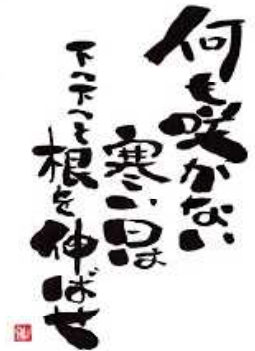 何も咲かない
寒い日は
下へ下へと
根を伸ばせ